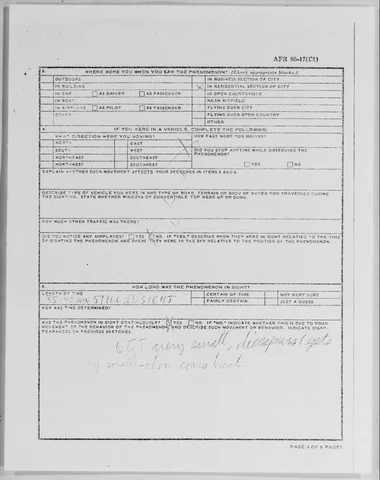 AFR 80-17(C1)
WHERE WERE YOU WHEN YOU SAW THE PHENOMENON? (Check appropriate blocks.)
OUTDOORS
IN BUSINESS SECTION OF CITY
IN BUILDING
IN RESIDENTIAL SECTION OF CITY
IN CAR
AS DRIVER
AS PASSENGER
IN OPEN COUNTRYSIDE
IN BOAT
NEAR AIRFIELD
IN AIRPLANE
AS PILOT
AS PASSENGER
FLYING OVER CITY
OTHER
FLYING OVER OPEN COUNTRY
OTHER
A. IF YOU WERE IN A VEHICLE, COMPLETE THE FOLLOWING:
WHAT DIRECTION WERE YOU MOVING?
HOW FAST WERE YOU MOVING?
NORTH
EAST
SOUTH
WEST
DID YOU STOP ANYTIME WHILE OBSERVING THE PHENOMENON?
NORTHEAST
SOUTHEAST
NORTHWEST
SOUTHWEST
YES
NO
EXPLAIN WHETHER SUCH MOVEMENT AFFECTS YOUR SKETCHES IN ITEMS
DESCRIBE TYPE OF VEHICLE YOU WERE IN AND TYPE OF ROAD, TERRAIN OR BODY OF WATER YOU TRAVERSED DURING
THE SIGHTING. STATE WHETHER WINDOWS OR CONVERTIBLE TOP WERE UP OR DOWN.
HOW MUCH OTHER TRAFFIC WAS THERE?
DID YOU NOTICE ANY AIRPLANES?
YES
NO. IF "YES," DESCRIBE WHEN THEY WERE IN SIGHT RELATIVE TO THE TIME
OF SIGHTING THE PHENOMENON AND WHERE THEY WERE IN THE SKY RELATIVE TO THE POSITION OF THE PHENOMENON.
HOW LONG WAS THE PHENOMENON IN SIGHT?
LENGTH OF TIME
CERTAIN OF TIME
NOT VERY SURE
STILL IN SIGHT
FAIRLY CERTAIN
JUST A GUESS
HOW WAS TIME DETERMINED?
WAS THE PHENOMENON IN SIGHT CONTINUOUSLY?
YES
NO. IF "NO," INDICATE WHETHER THIS IS DUE TO YOUR
MOVEMENT OR THE BEHAVIOR OF THE PHENOMENON AND DESCRIBE SUCH MOVEMENT OR BEHAVIOR. INDICATE DISAP-
PEARANCES ON PREVIOUS SKETCHES.
GET very small, disappears (gets
very small - then comes back.
PAGE 3 OF 5 PAGES